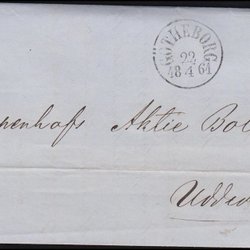 GÖTHEBORG
22
18 4 61
penhofs Aktie Bol
Uddev